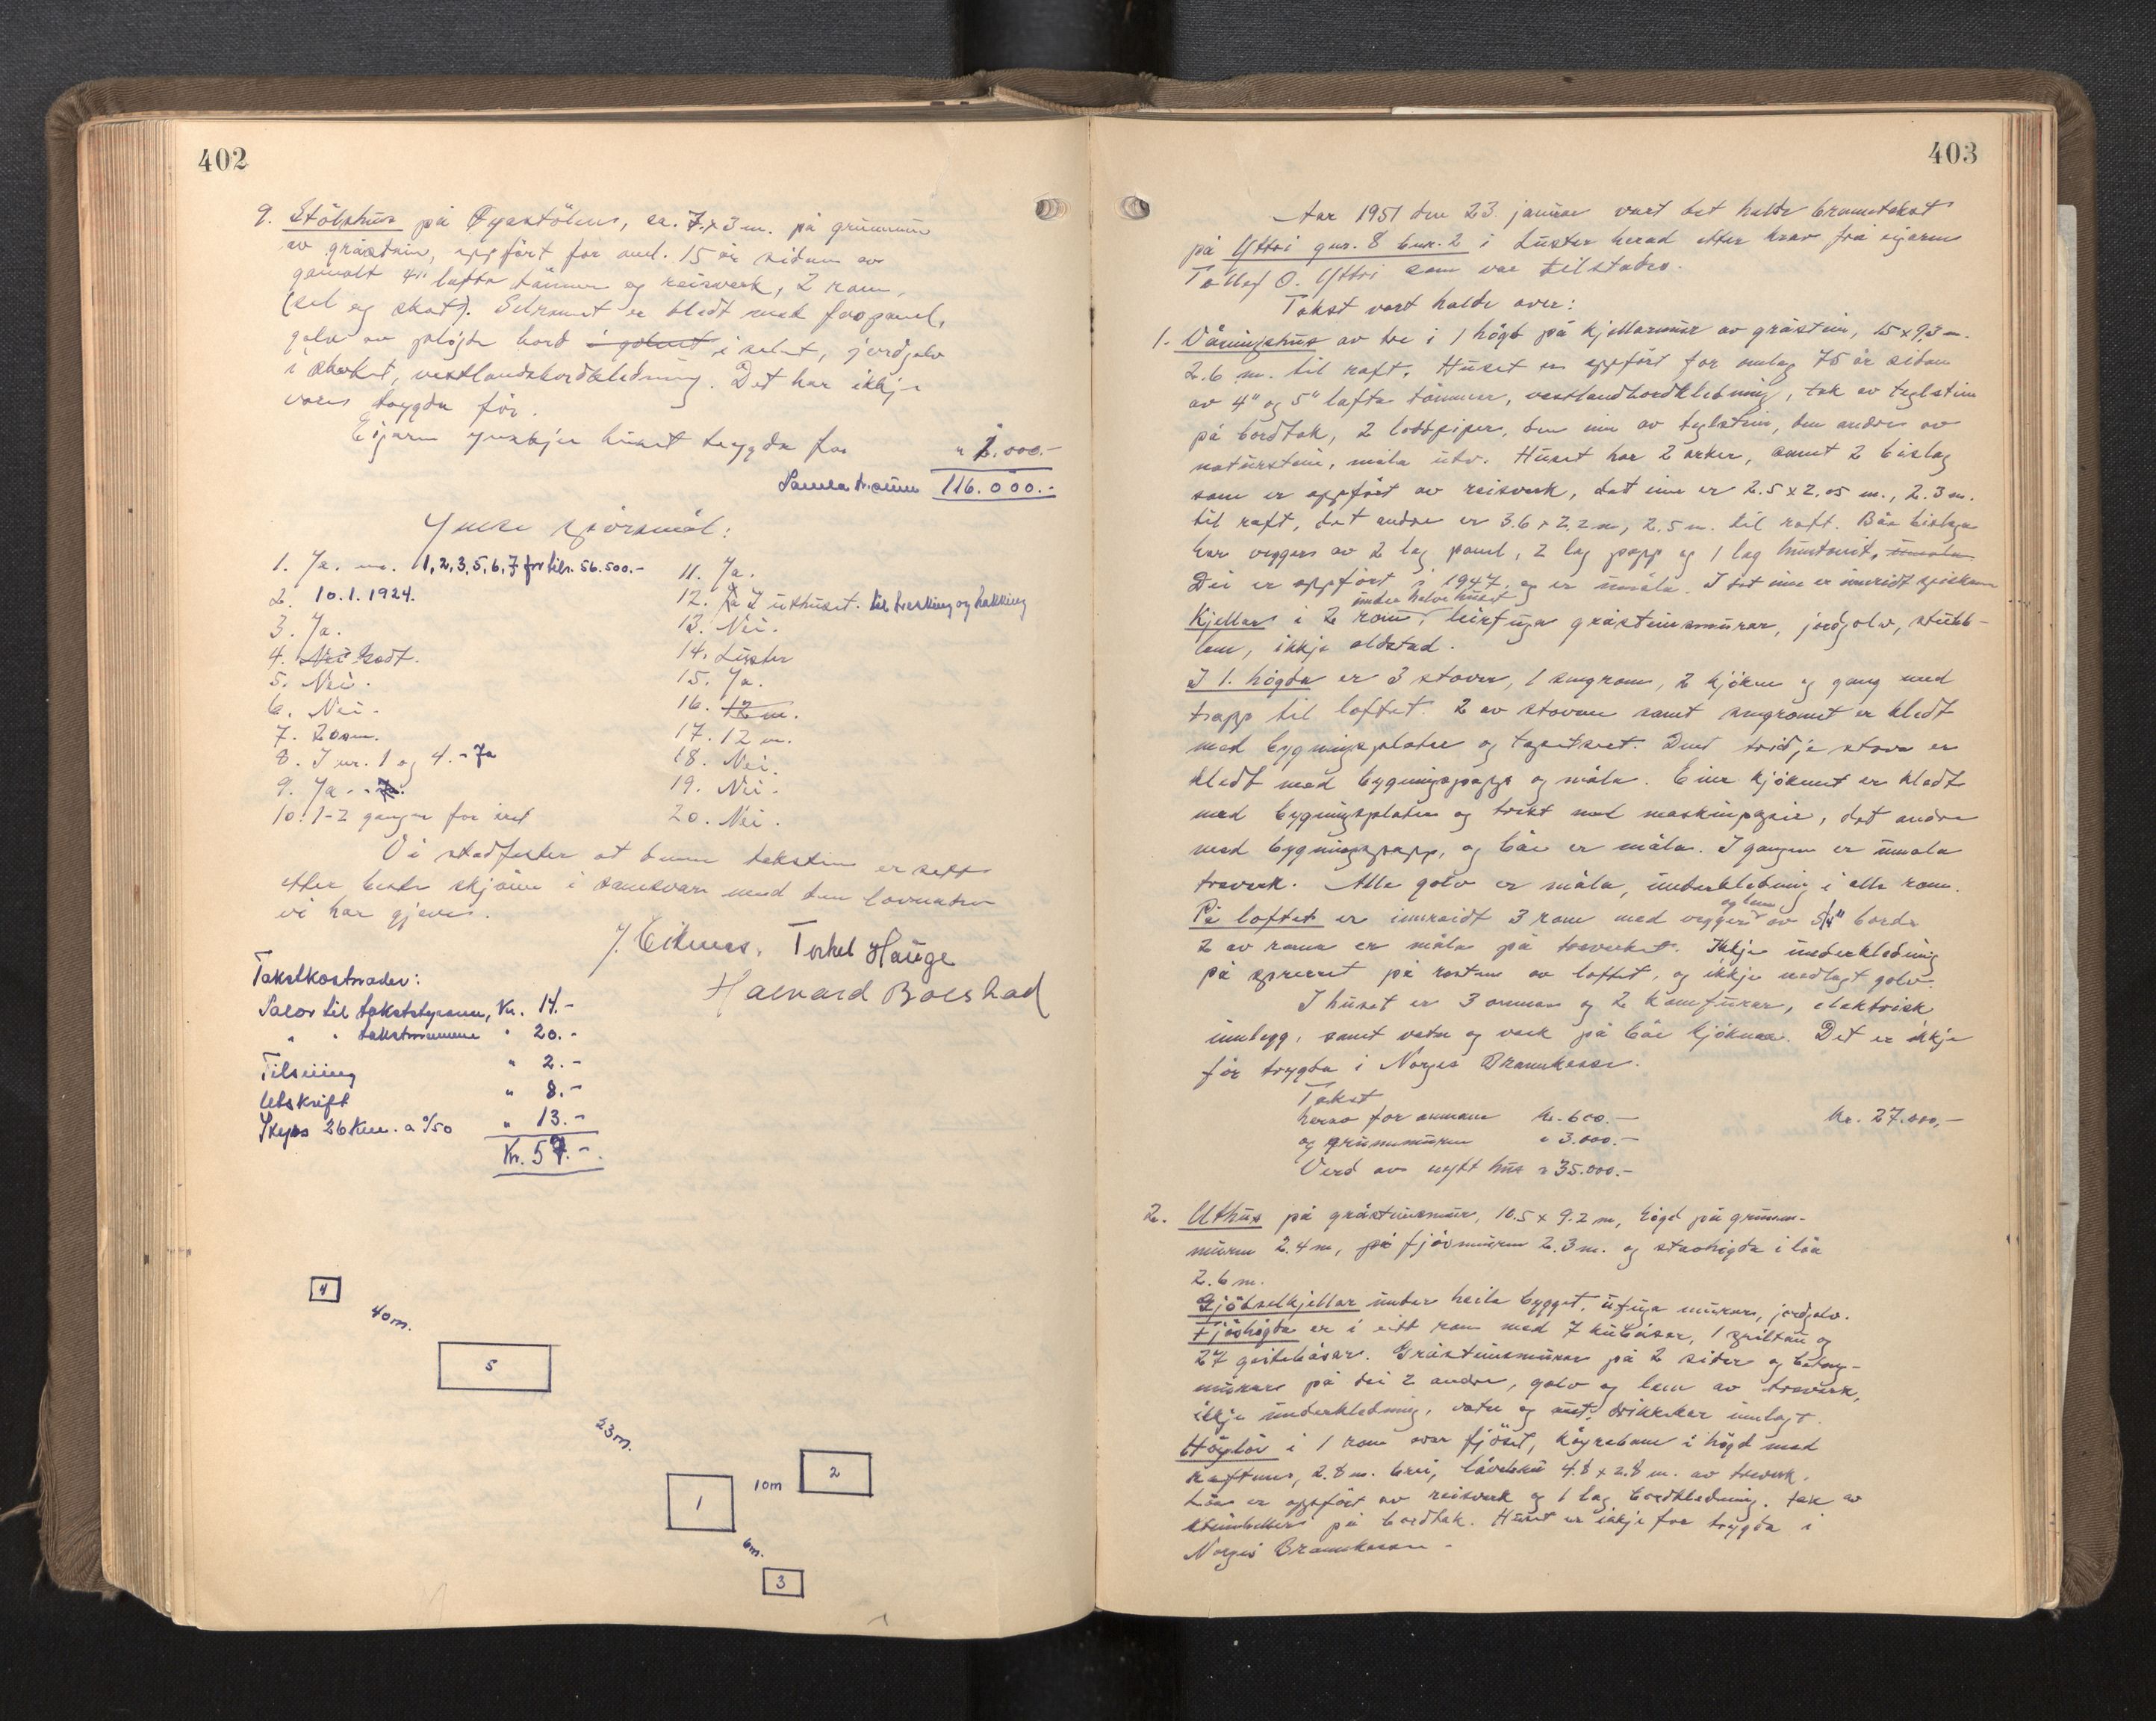 402
9. Stölshus på Øyastölen, ca. 7 x 3 m. på grunnmur
av gråstein, oppført for oml. 15 år sidan av
gamalt 4" lafta tömmer og reisverk, 2 rom,
(sel og skot). Selromet er kledt med faspanel,
golv av pløgde bord i golvet i selet, jordgolv
i skotet, vestlandsbordkledning. Det har ikkje
vore trygda för.
Eigaren ynskjer huset trygda for " 1.000.-
Samla br.sum 116.000.-
Ymse spörsmål:
1. Ja. nr. 1,2,3,5,6,7 for tils. 56.500.-
2. 10.1.1924.
3. Ja.
4. Nei Godt.
5. Nei.
6. Nei.
7. 20 m.
8. I nr. 1 og 4. - Ja
9. Ja.
10. 1-2 gonger for året
11. Ja.
12. Ja I uthuset. til tresking og hakking
13. Nei.
14. Luster
15. Ja.
16. 12 m.
17. 12 m.
18. Nei.
19. Nei.
20. Nei.
Vi stadfester at denne taksten er sett
etter beste skjönn i samsvar med den lovnaden
vi har gjeve.
J. Eikenes. Torkel Hauge
Halvard Bolstad
Takstkostnader:
Salær til takststyraren, Kr. 14.-
" " takstmennene " 20.-
Tilseiing " 2.-
Utskrift " 8.-
Skyss 26 km. a 0/50 " 13.-
Kr. 57.-
4
40 m.
5
23 m.
1
10 m
2
6 m.
3
403
Aar 1951 den 23. januar vart det halde branntakst
på Yttri gnr. 8 bnr. 2 i Luster herad etter krav frå eigaren
Tollef O. Yttri som var tilstades.
Takst vart halde over:
1. Våningshus av tre i 1 högd på kjellarmur av gråstein, 15 x 9,3 m.
2.6 m. til raft. Huset er oppfört for omlag 75 år sidan
av 4" og 5" lafta tömmer, vestlandbordkledning, tak av teglstein
på bordtak, 2 loddpiper, den eine av teglstein, den andre av
naturstein, måla utv. Huset har 2 arker, samt 2 bislag
som er oppfört av reisverk, det eine er 2.5 x 2.05 m., 2.3 m.
til raft, det andre er 3.6 x 2.2 m, 2.5 m. til raft. Båe bislaga
har veggar av 2 lag panel, 2 lag papp og 1 lag huntonit, umåla
Dei er oppfört i 1947, og er umåla. I det eine er innreidt spiskam
under halve huset
Kjellar i 2 rom, leirfuga gråsteinsmurar, jordgolv, stubb-
lem, ikkje eldstad.
I 1. högda er 3 stover, 1 sengrom, 2 kjöken og gang med
trapp til loftet. 2 av stovene samt sengromet er kledt
med bygningsplater og tapetsert. Den tridje stova er
kledt med bygningspapp og måla. Eine kjökenet er kledt
med bygningsplater og trekt med maskinpapir, det andre
med bygningspapp, og båe er måla. I gangen er umåla
treverk. Alle golv er måla, underkledning i alle rom.
og lem
På loftet er innreidt 3 rom med vegger av 5/4" bord.
2 av roma er måla på treverket. Ikkje underkledning
på sperret på resten av loftet, og ikkje nedlagt golv.
I huset er 3 omnar og 2 komfurar, elektrisk
innlegg, samt vatn og vask på båe kjökna. Det er ikkje
för trygda i Norges Brannkasse.
Takst Kr. 27.000,-
herav for omnane kr. 600.-
og grunnmuren " 3.000.-
Verd av nytt hus " 35.000.-
2. Uthus på gråsteinsmur, 10.5 x 9.2 m, högd på grunn-
muren 2.4 m, på fjösmuren 2.3 m. og stavhögda i löa
2.6 m.
Gjödselkjellar under heile bygget, ufuga murar, jordgolv.
Fjöshögda er i eitt rom med 7 kubåsar, 1 spiltau og
27 geitebåsar. Gråsteinsmurar på 2 sider og betong-
murar på dei 2 andre, golv og lem av treverk,
ikkje underkledning, vatn og aut. drikkekar innlagt.
Höylöi i 1 rom over fjöset, köyrebane i högd med
raftene, 2.8 m. brei, låvebru 4.8 x 2.8 m. av treverk.
Löa er oppfört av reisverk og 1 lag bordkledning. tak av
steinheller på bordtak. Huset er ikkje for trygda i
Norges Brannkasse.